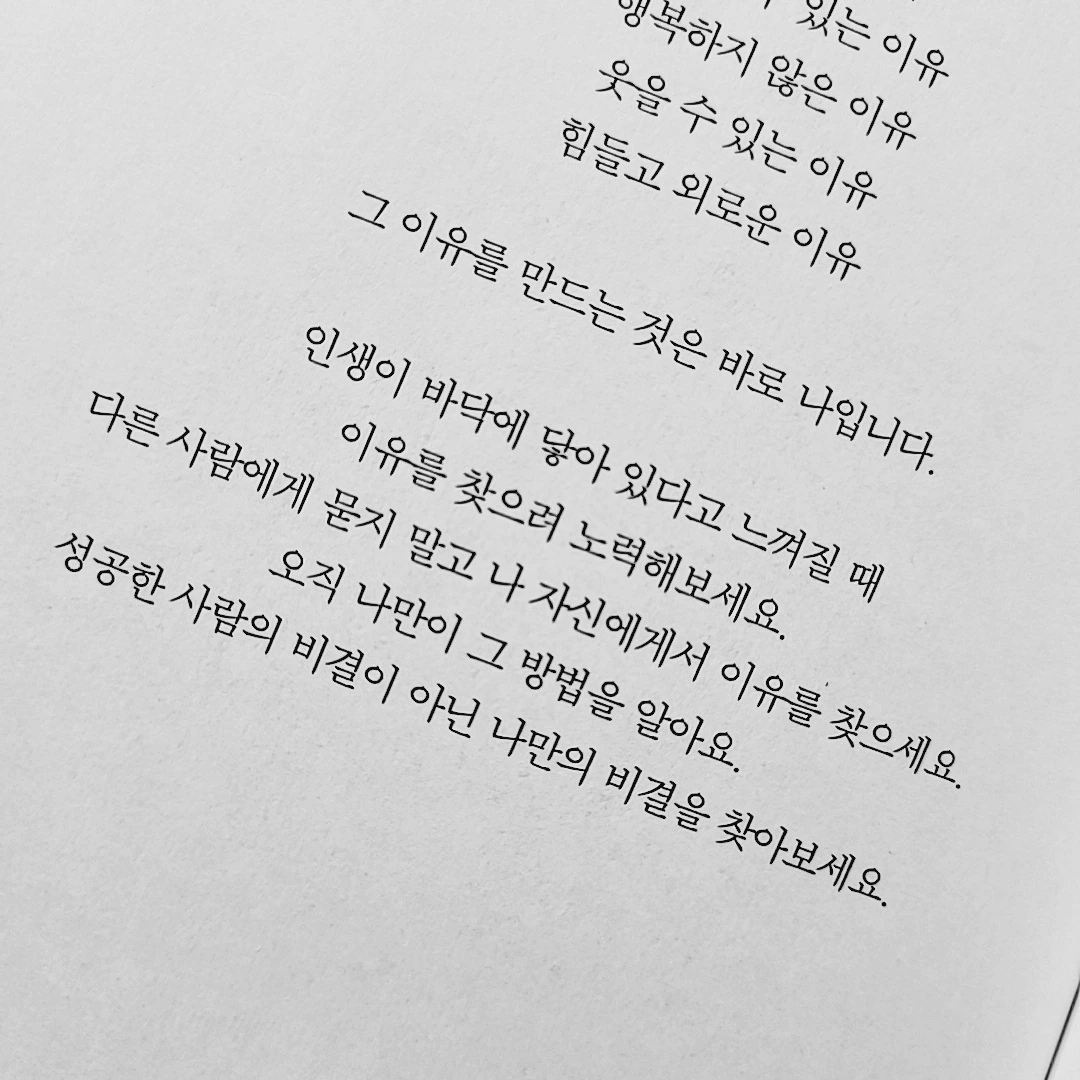 있는 이유
행복하지 않은 이유
웃을 수 있는 이유
힘들고 외로운 이유
그 이유를 만드는 것은 바로 나입니다.
인생이 바닥에 닿아 있다고 느껴질 때
이유를 찾으려 노력해보세요.
다른 사람에게 묻지 말고 나 자신에게서 이유를 찾으세요.
오직 나만이 그 방법을 알아요.
성공한 사람의 비결이 아닌 나만의 비결을 찾아보세요.